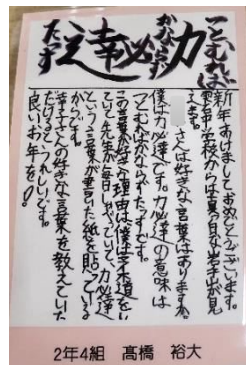 つとむれば
かならず
たっす
力必達
新年あけましておめでとうございます。
雫石中学校からは真っ白な岩手山が見
えます。
さんは好きな言葉はありますか。
僕は力必達です。力必達の意味は
つとむればかならずたっすです。
この言葉が好きな理由は、僕は柔道をし
ていて先生が毎日しゃべっていて、力必達
という言葉が書いた紙を貼っている
からです。
幸子さんの好きな言葉を教えていた
だけるとうれしいです。
良いお年を!
2年4組 髙橋 裕大